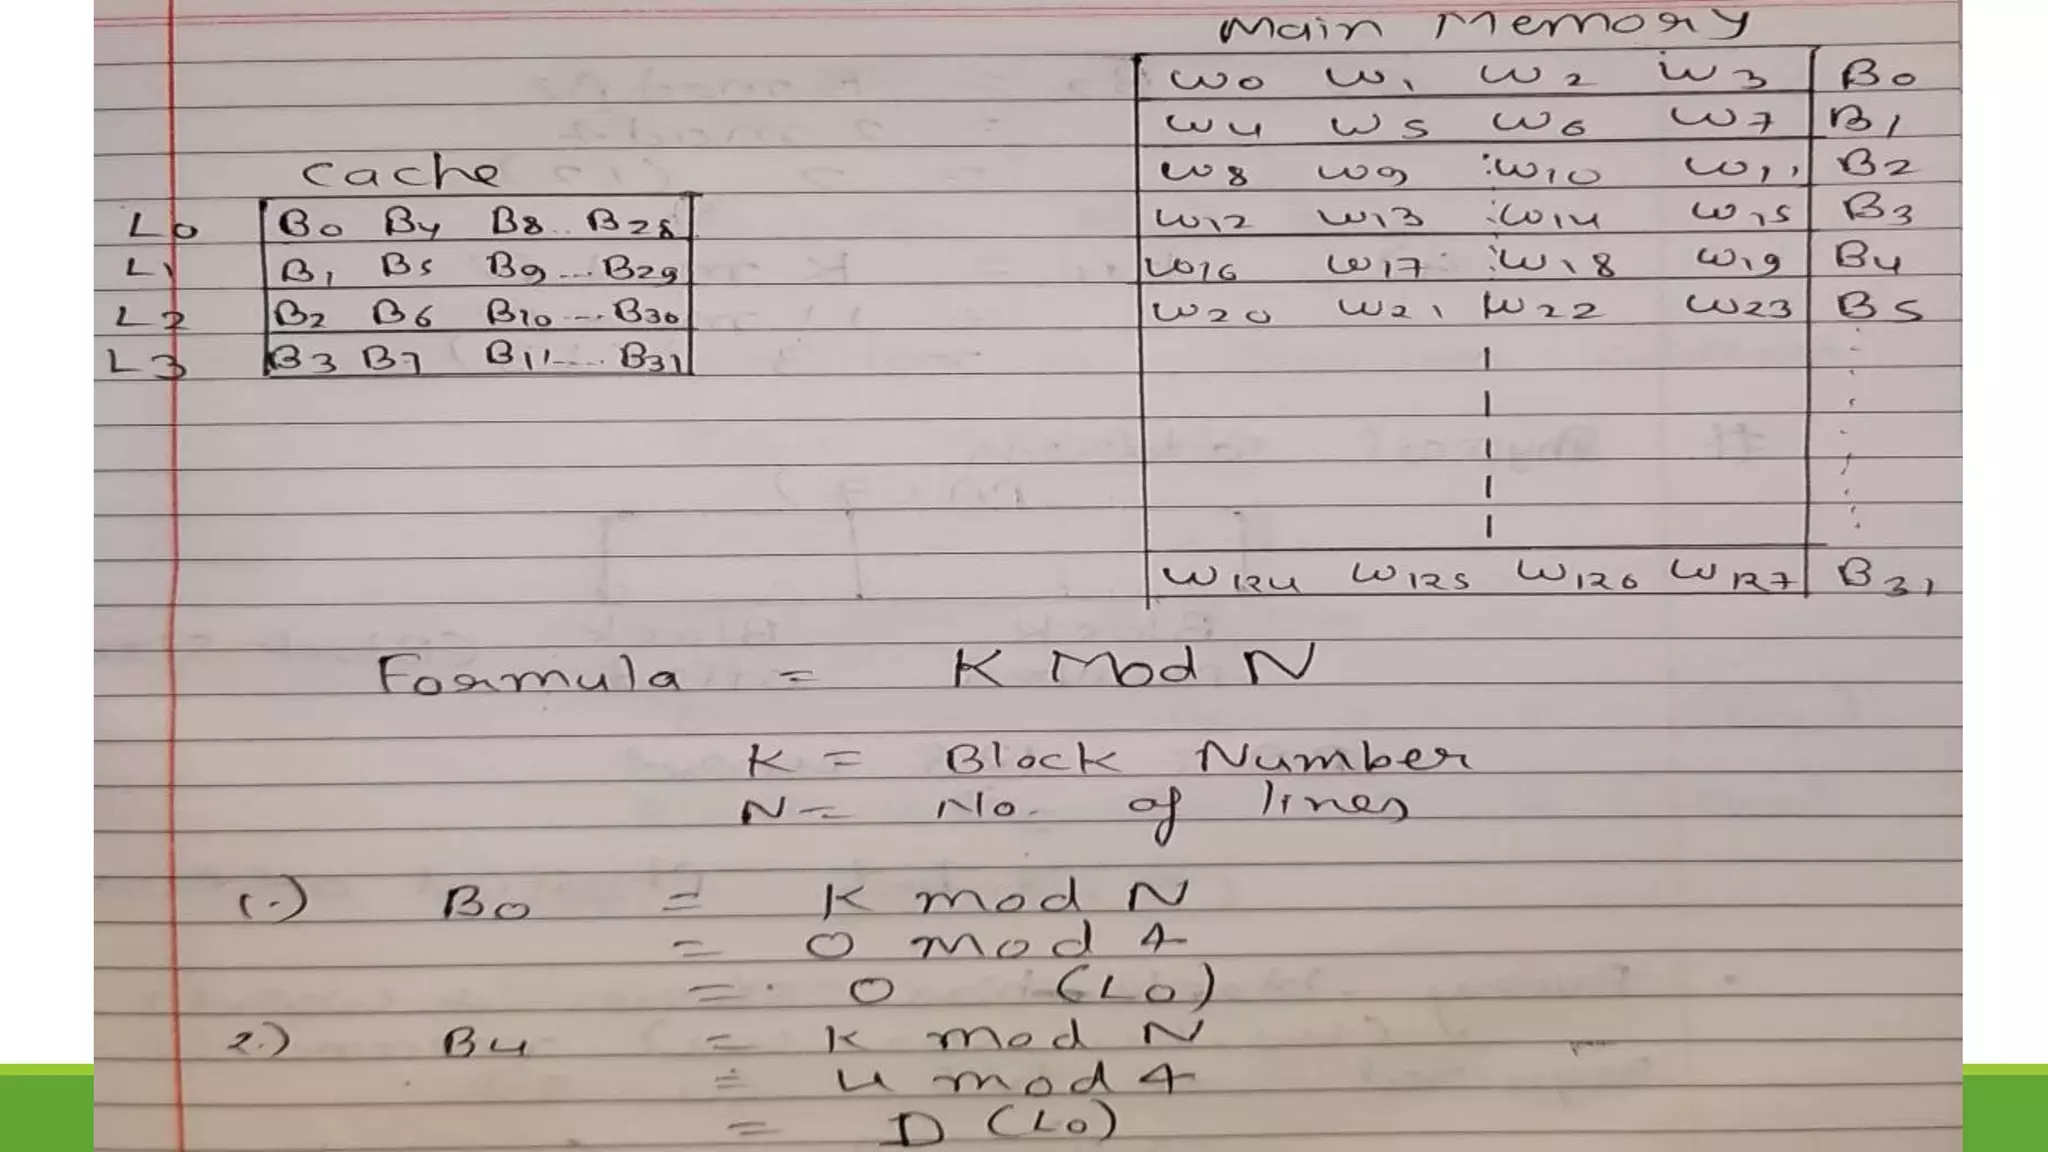 Main Memory
W0 W1 W2 W3 B0
W4 W5 W6 W7 B1
W8 W9 W10 W11 B2
W12 W13 W14 W15 B3
W16 W17 W18 W19 B4
W20 W21 W22 W23 B5
W124 W125 W126 W127 B31
Cache
L0 B0 B4 B8 .. B28
L1 B1 B5 B9 ... B29
L2 B2 B6 B10 ... B30
L3 B3 B7 B11 .... B31
Formula = K Mod N
K = Block Number
N = No. of lines
1.) B0 = K mod N
= 0 mod 4
= 0 (L0)
2.) B4 = K mod N
= 4 mod 4
= 0 (L0)